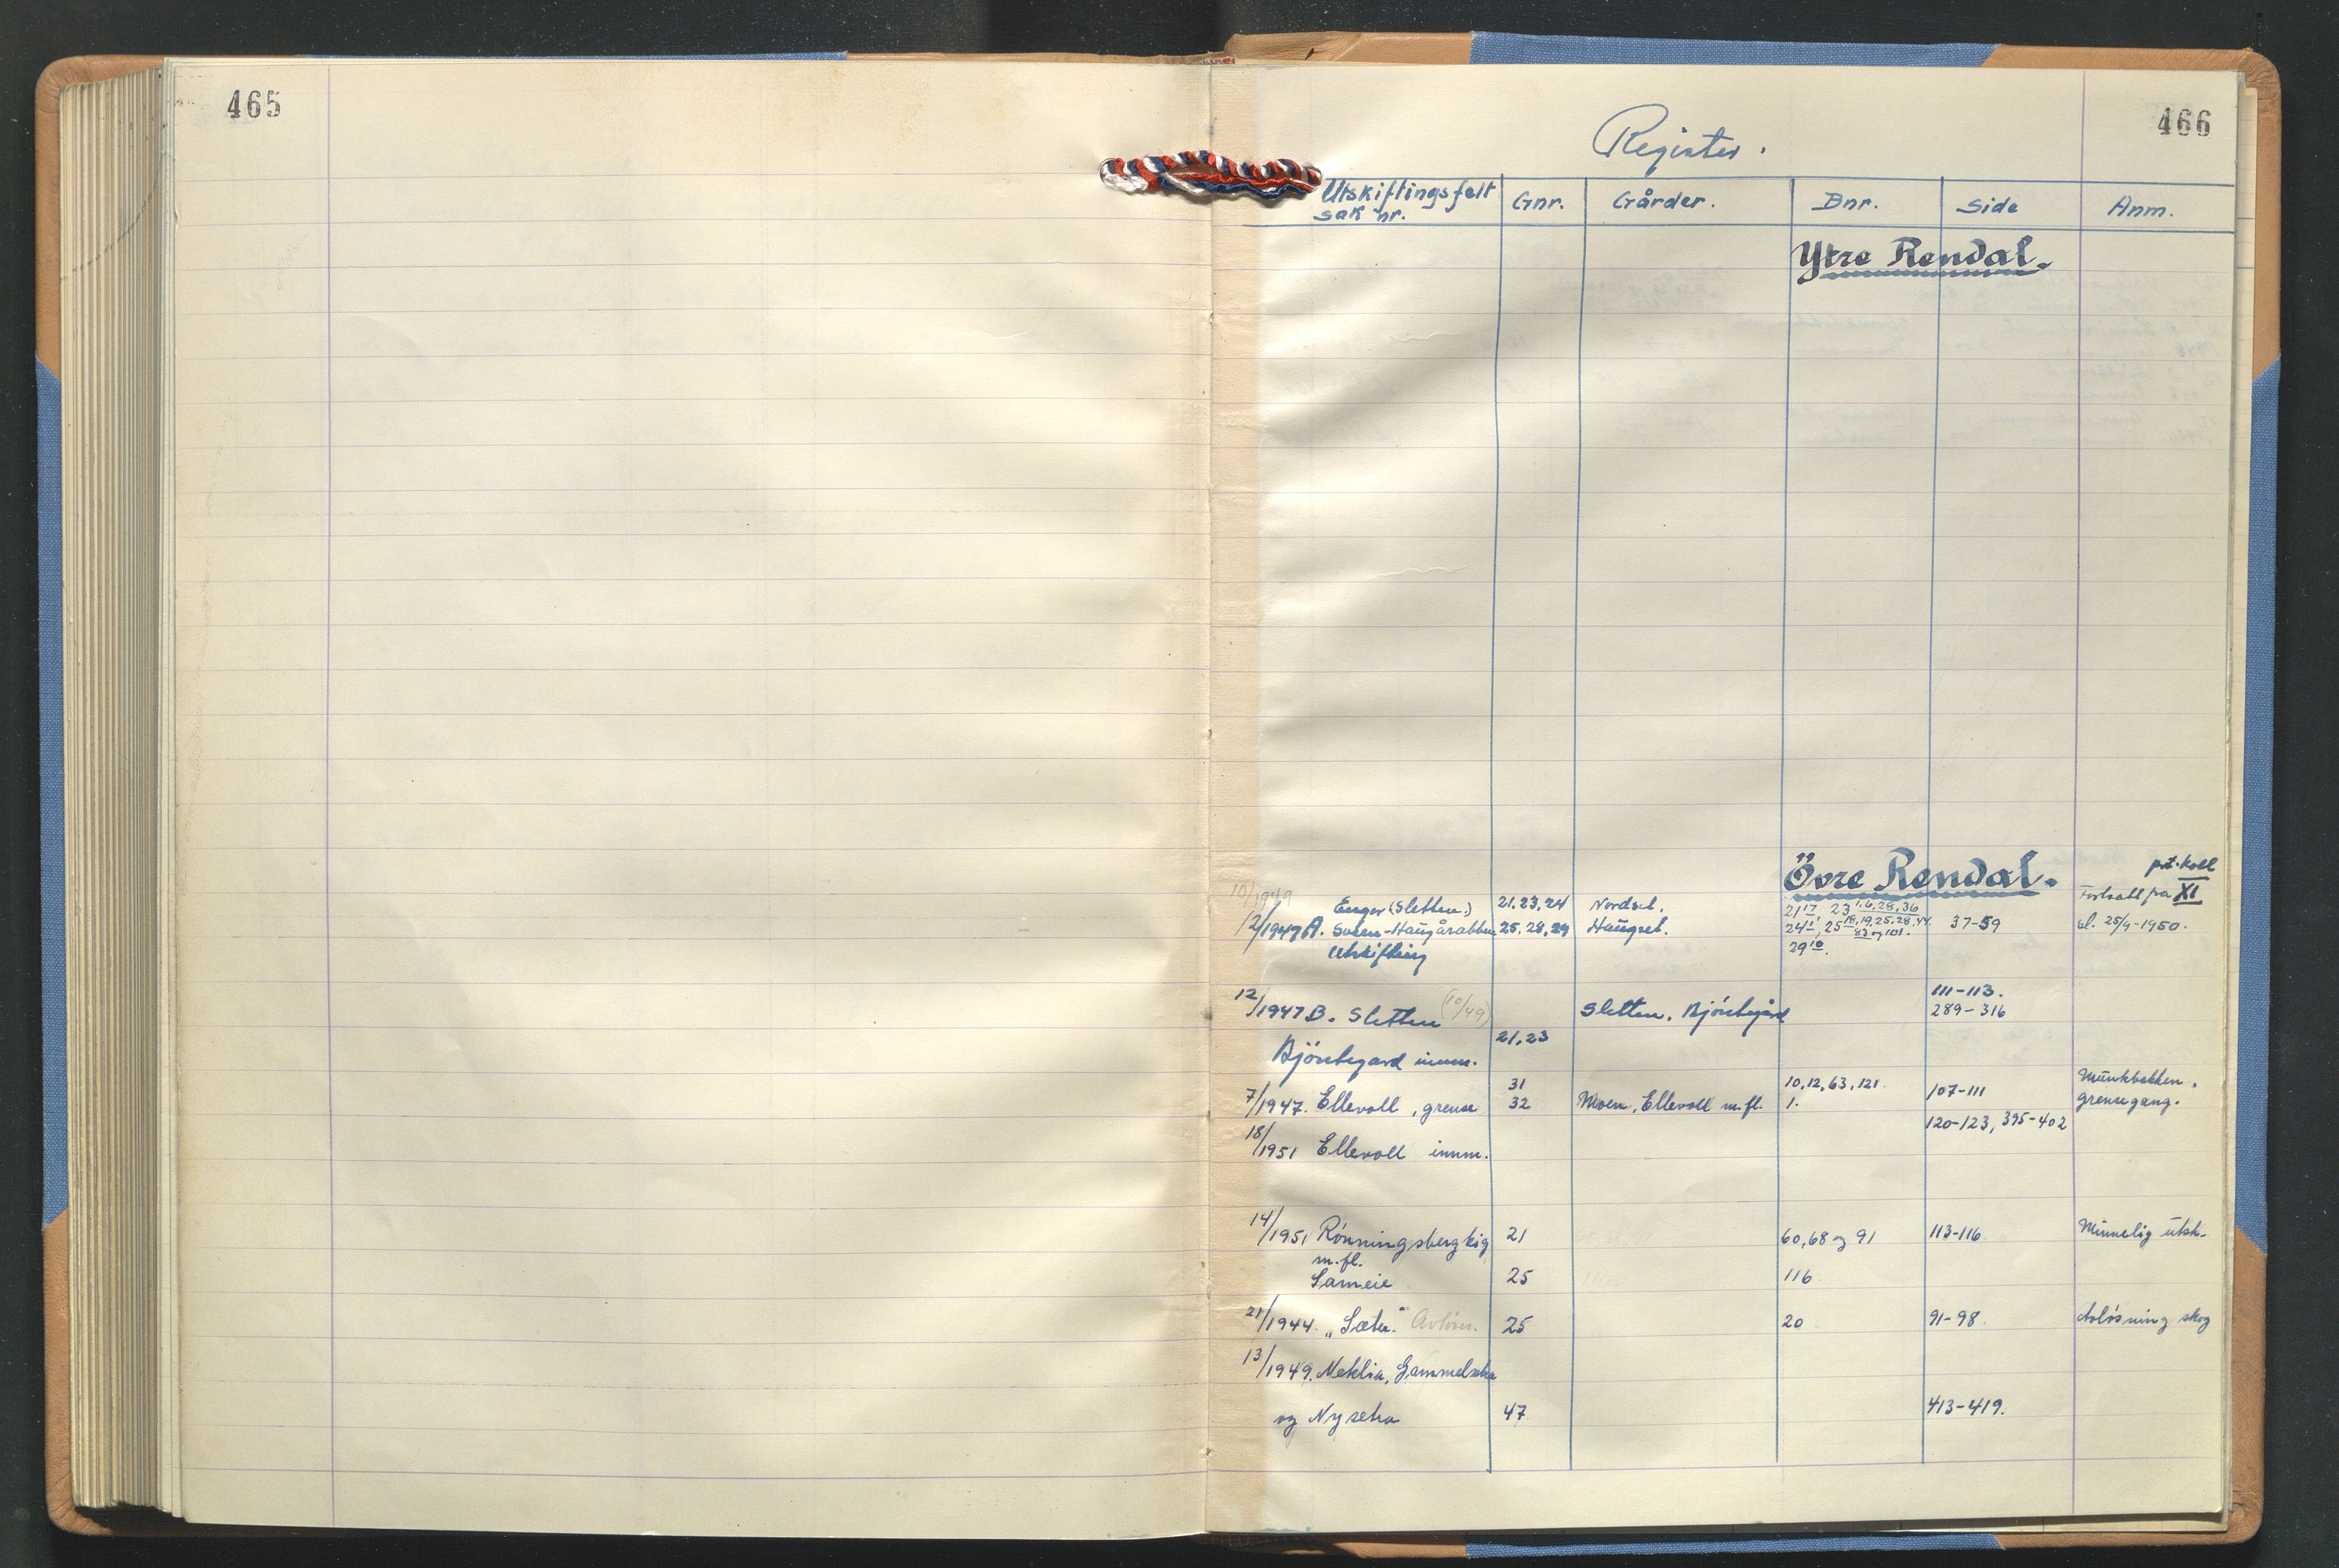 465
466
Register.
Utskiftingsfelt
sak nr. Gnr. Gårder. Bnr. Side Anm.
Ytre Rendal.
Övre Rendal. prt.koll
10/1949 (Sletten) 21, 23, 24 Nordset. 21 17, 23 1, 6, 28, 36 Fortsatt fra XI
12/1947 A. 25, 28, 29 Haugset. 24 1, 25 18, 19, 25, 28, 44 37-59 25/9-1950.
Utskifting 83 og 101.
29 10.
12/1947 B. Sletten (10/49) Sletten, 111-113.
289-316
21, 23
innm.
31 10, 12, 63, 121
7/1947. Ellevoll, grense 32 Moen, Ellevoll m.fl. 1. 107-111 Munkbekken, grensegang.
120-123, 395-402
18/1951 Ellevoll innm.
14/1951 Rønningsberg kig 21 60, 68 og 91 113-116 Minnelig utsk.
m.fl.
Sameie 25 116
21/1944. „Sæter." Avløsn. 25 20 91-98 Avløsning skog
13/1949. Neklia, Gammelsetra
og Nysetra 47 413-419.